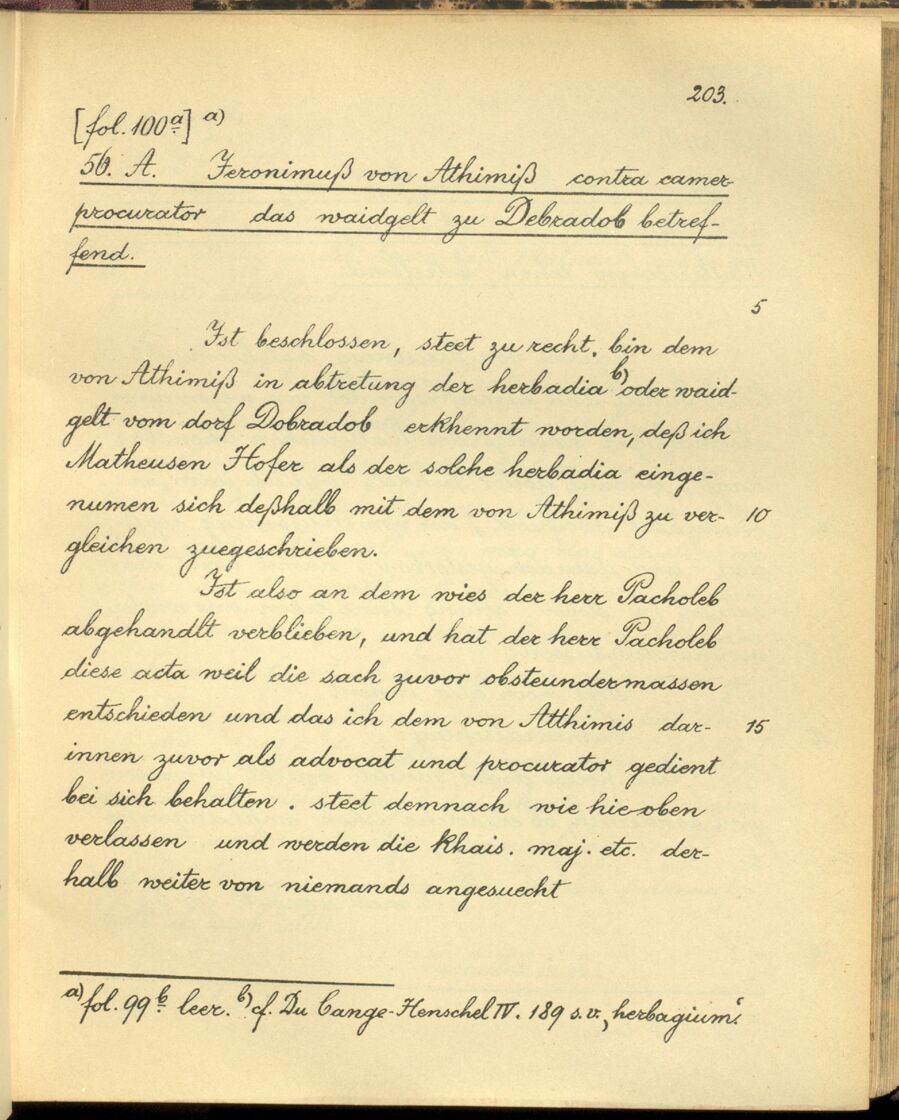 203.
[fol. 100a] a)
56. A. Jeronimuß von Athimiß contra camer-
procurator das waidgelt zu Debradob betref-
fend.
5
Ist beschlossen, steet zu recht. bin dem
von Athimiß in abtretung der herbadia b) oder waid-
gelt vom dorf Dobradob erkhennt worden, deß ich
Matheusen Hofer als der solche herbadia einge-
numen sich deßhalb mit dem von Athimiß zu ver- 10
gleichen zuegeschrieben.
Ist also an dem wies der herr Pacholeb
abgehandlt verblieben, und hat der herr Pacholeb
diese acta weil die sach zuvor obsteundermassen
entschieden und das ich dem von Atthimis dar- 15
innen zuvor als advocat und procurator gedient
bei sich behalten. steet demnach wie hie oben
verlassen und werden die khais. maj. etc. der-
halb weiter von niemands angesuecht
a) fol. 99b leer. b) cf. Du Cange-Henschel IV. 189 s.v. „herbagium“